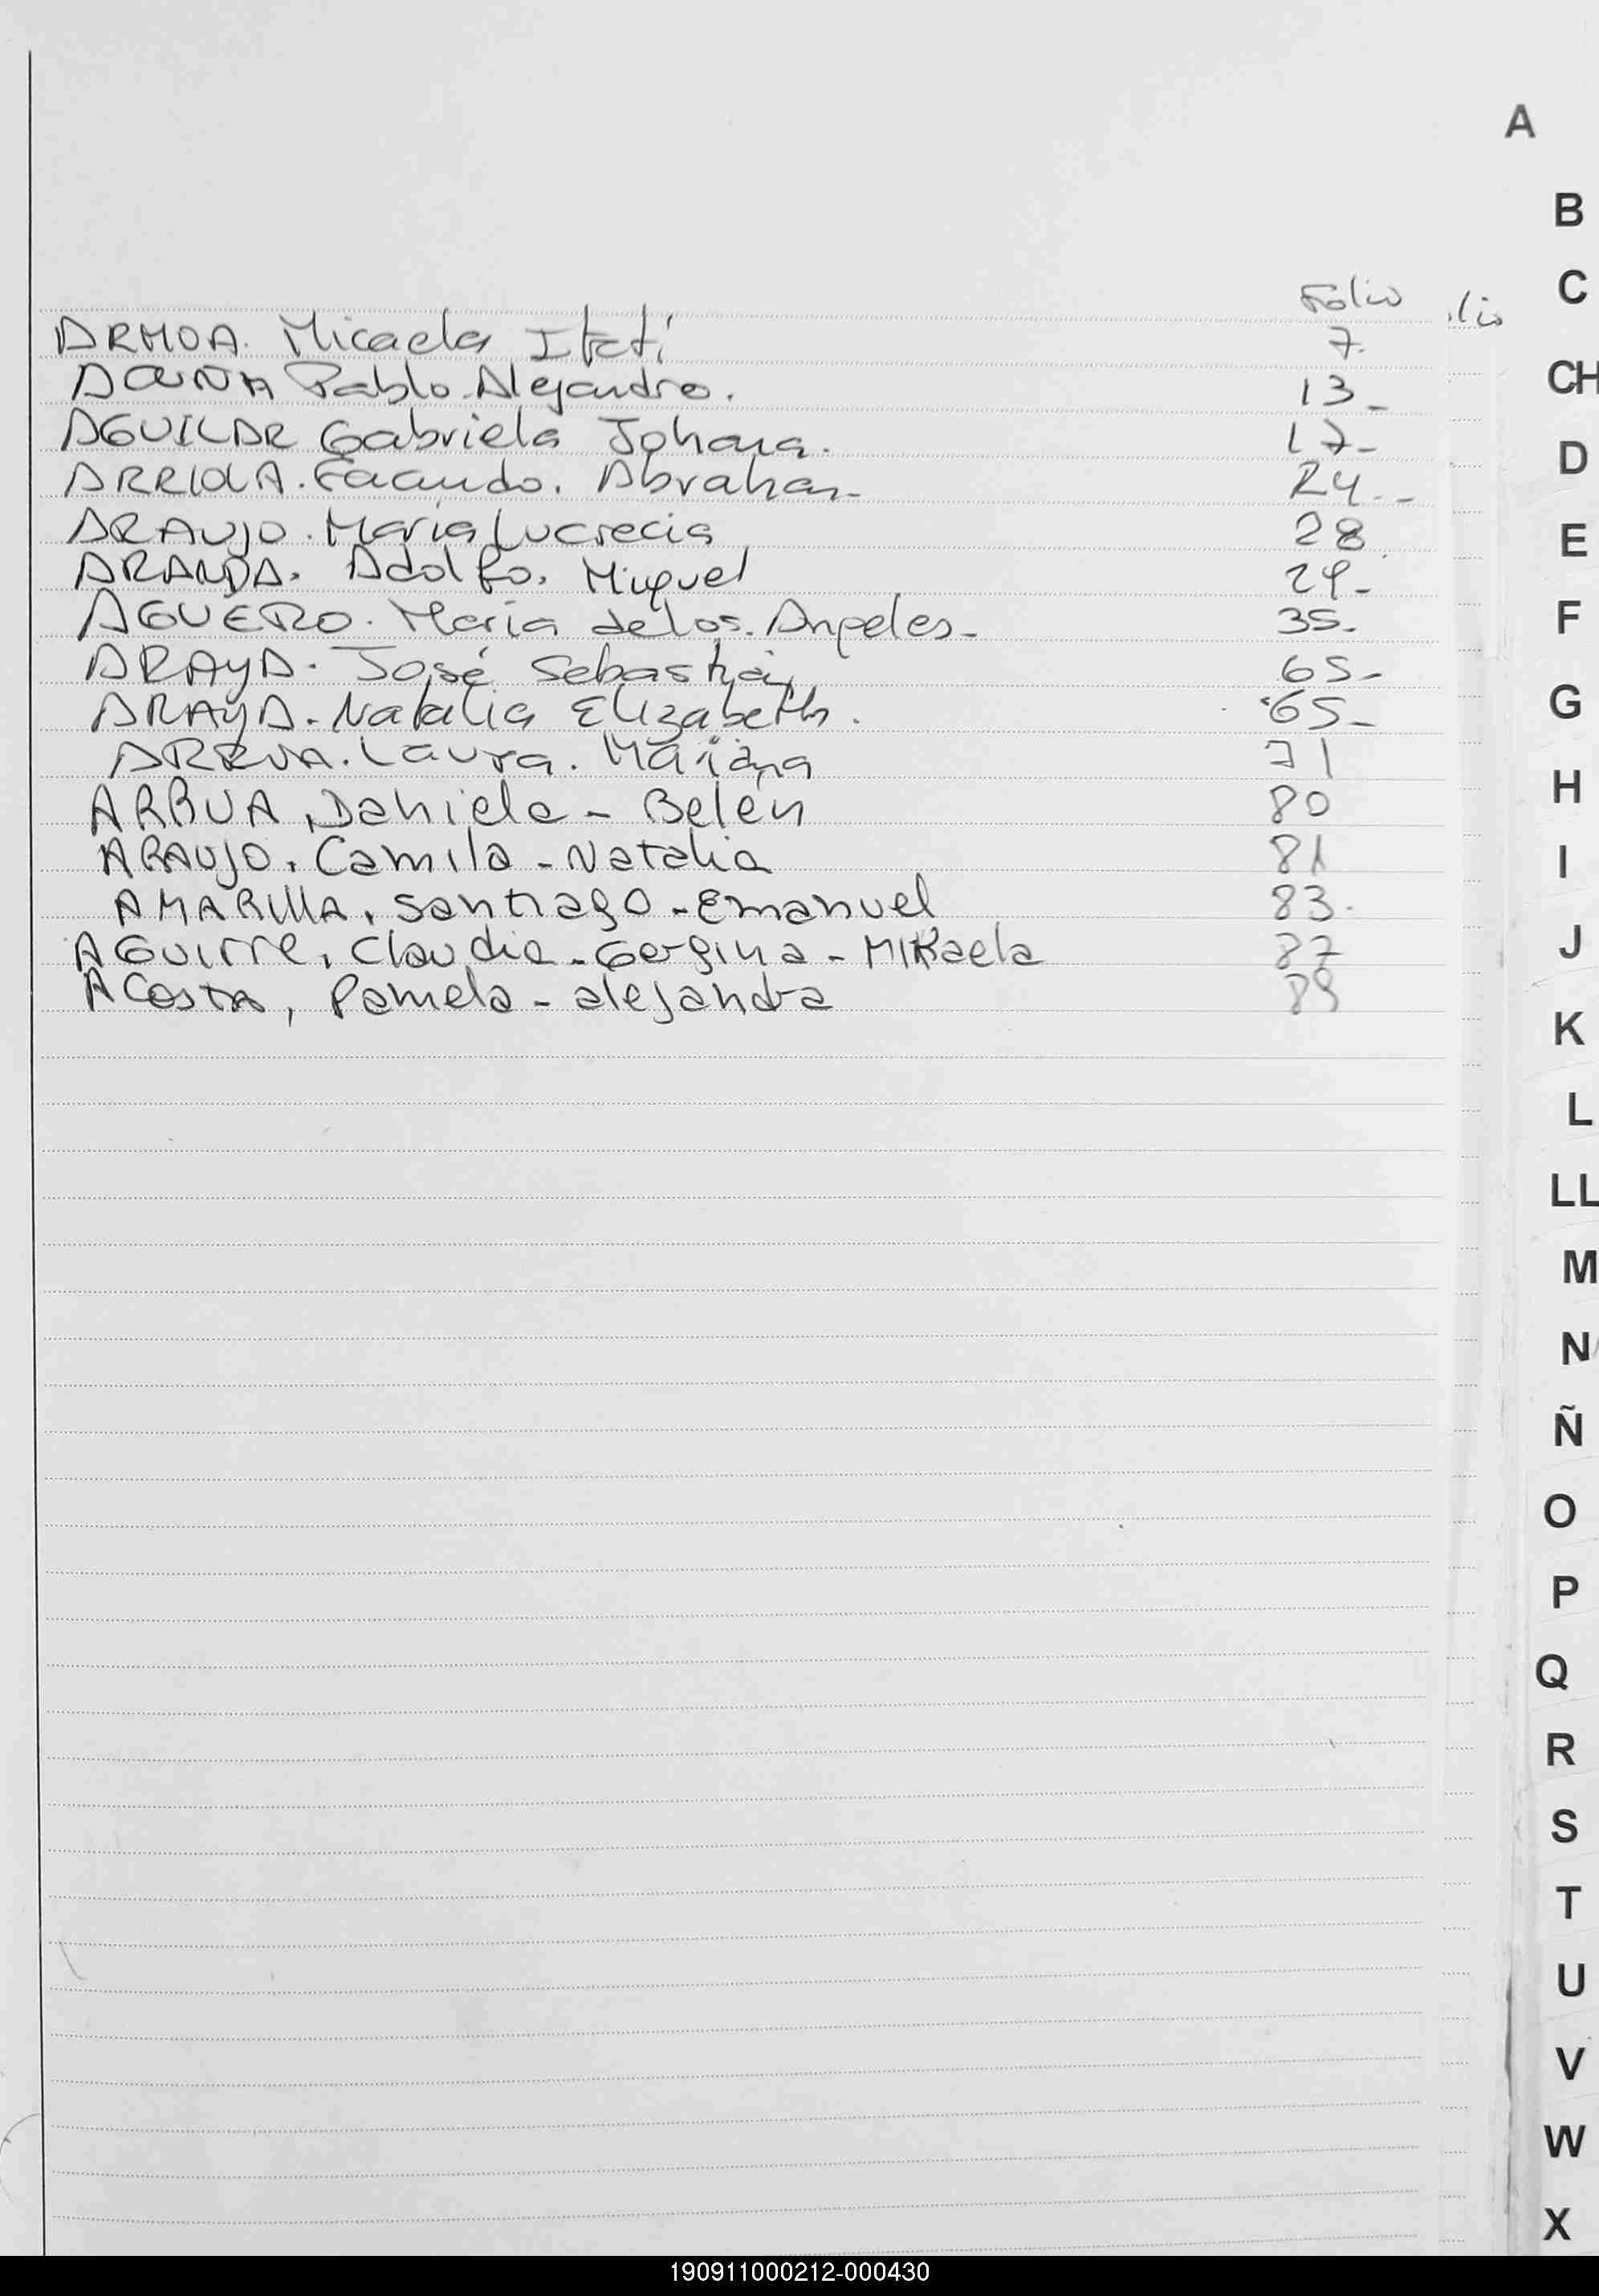 A
B
C
Folio
lio
ARMOA. Micaela Itatí 7.
ACUÑA Pablo Alejandro. 13_
AGUILAR Gabriela Johana. 17_
CH
D
ARRIOLA. Facundo. Abraham_ 24._
ARAUJO. María Lucrecia 28
E
ARANDA. Adolfo. Miguel 29_
AGUERO. María de los. Angeles_ 35_
F
ARAYA. José Sebastián 65_
ARAYA. Natalia Elizabeth. 65_
G
Laura. Mariana 71
H
ARBUA, Daniela - Belén 80
ARAUJO, Camila - Natalia 81
I
AMARILLA, Santiago - Emanuel 83.
AGUIrre, Claudia - Gergina - MIKaela 87
J
ACOSTA, Pamela - alejandra 89
K
L
LL
M
N
Ñ
O
P
Q
R
S
T
U
V
W
X
190911000212-000430